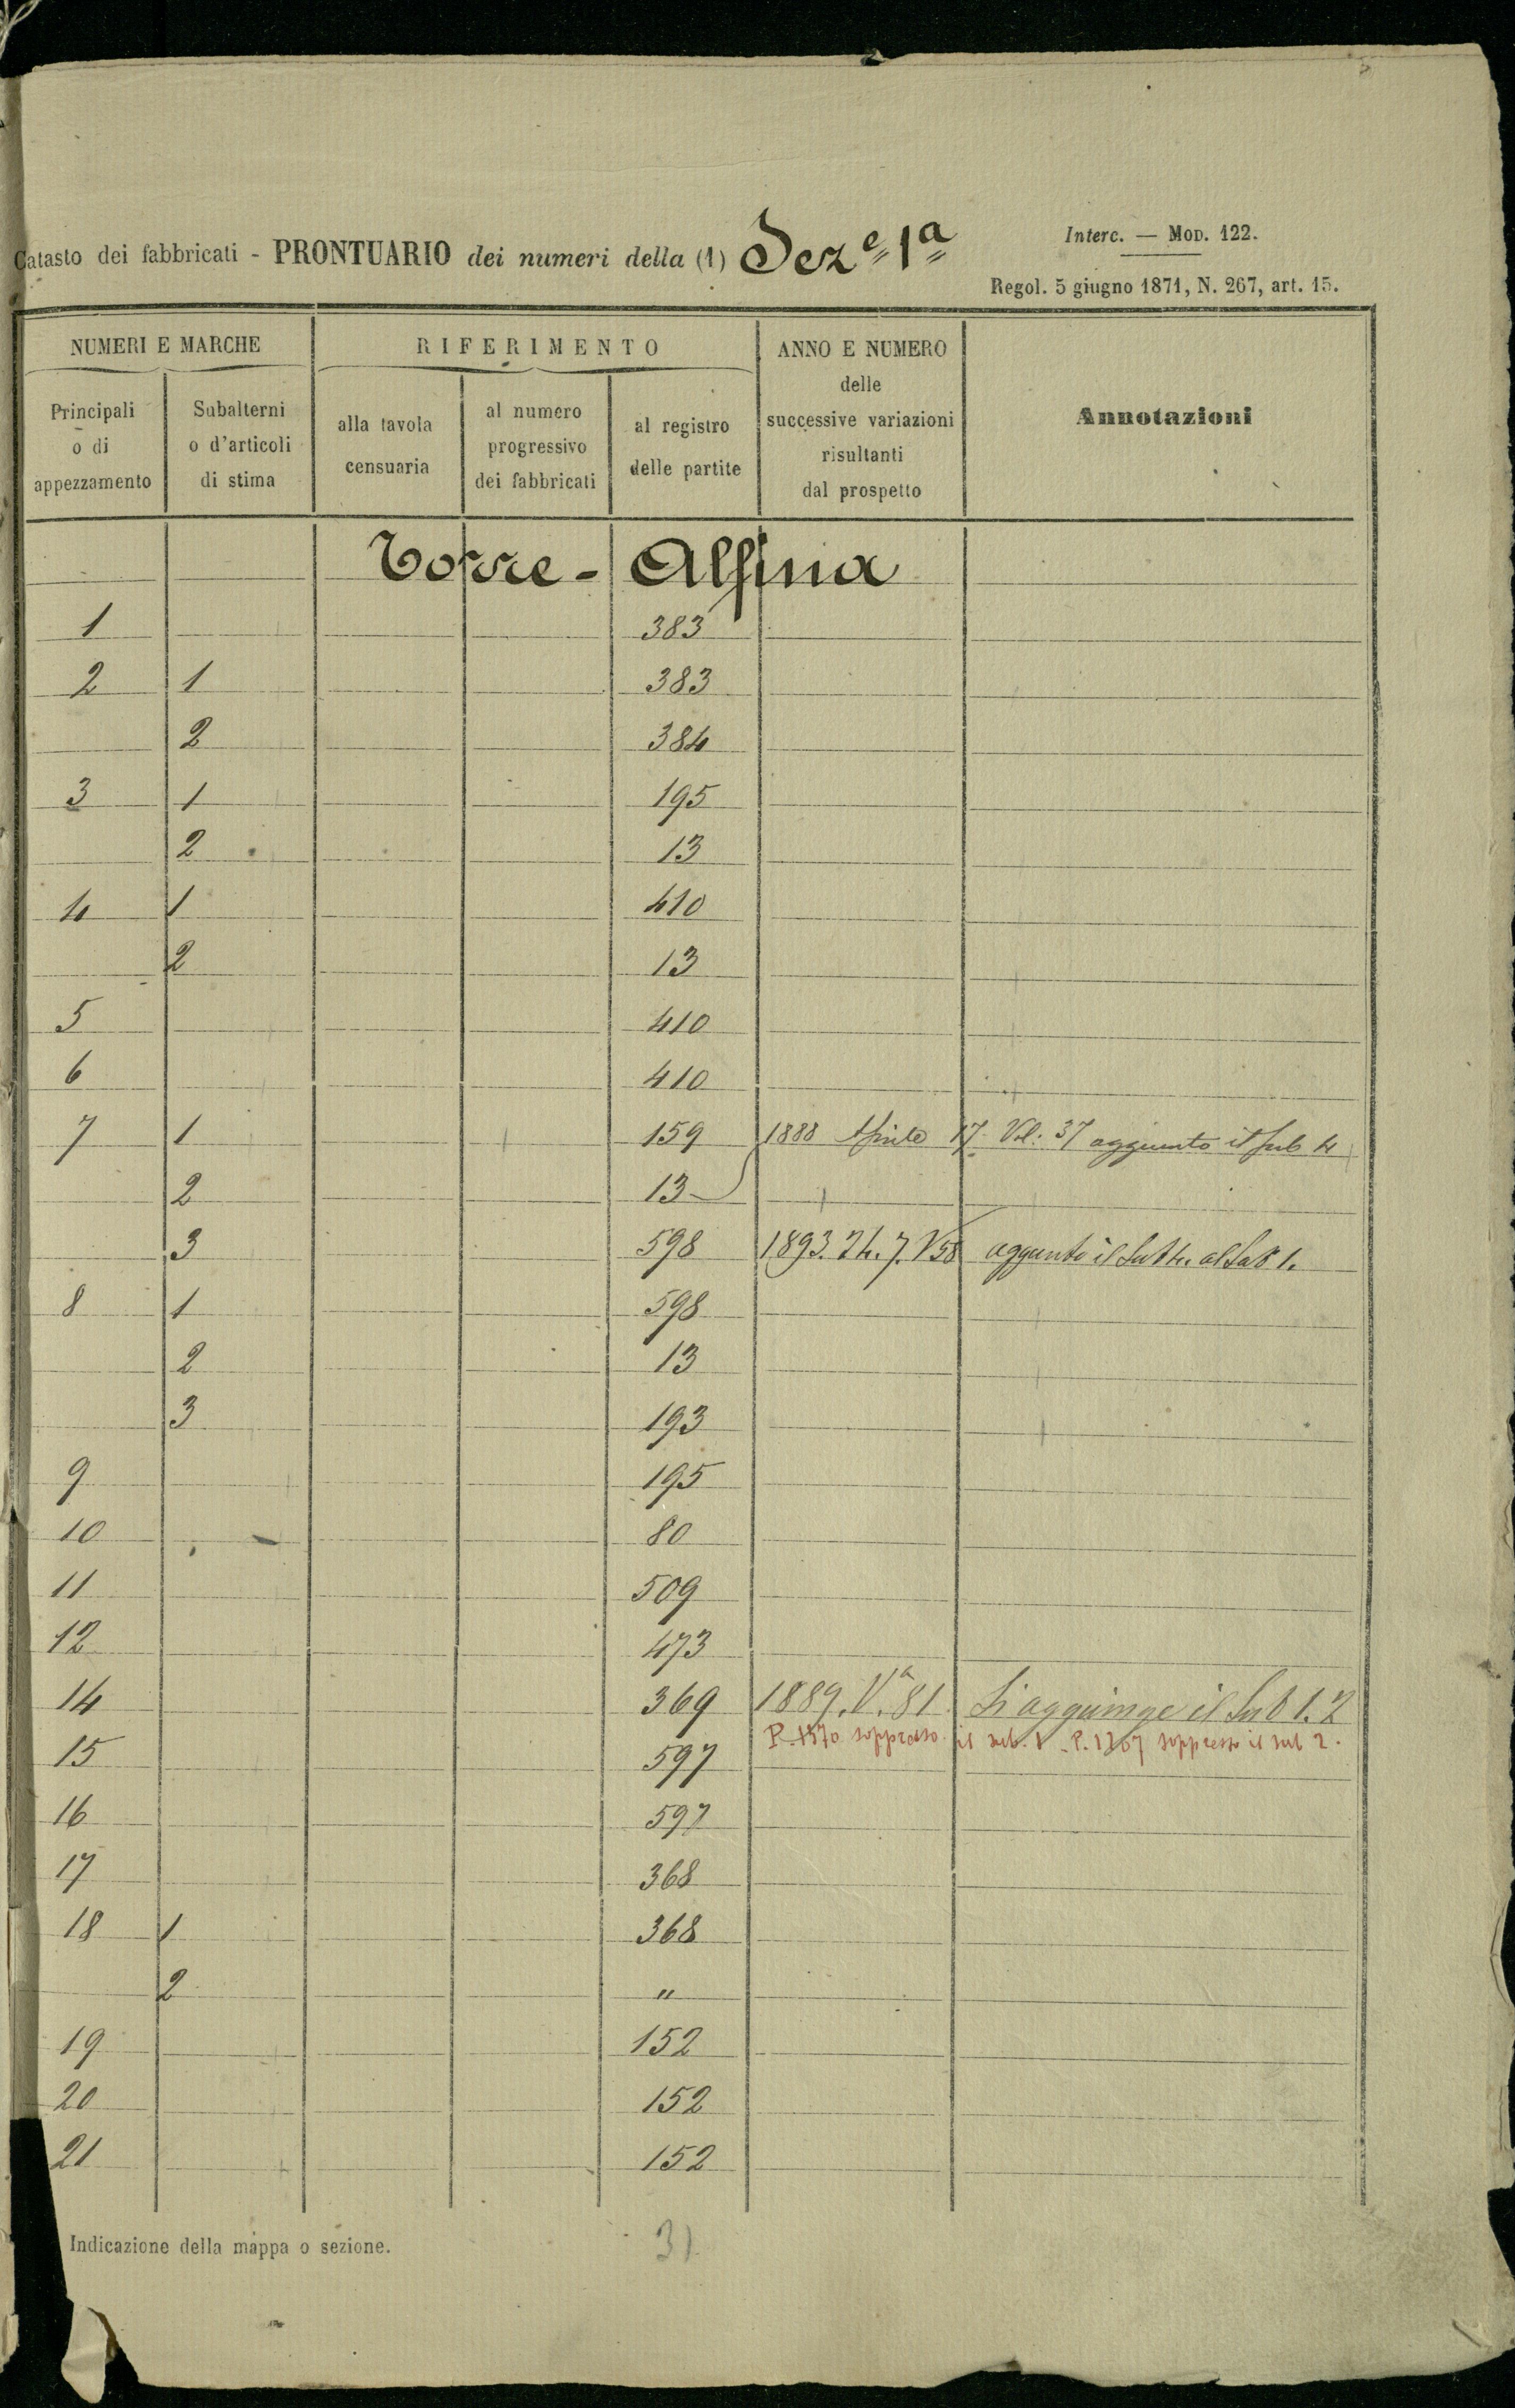 Catasto dei fabbricati - PRONTUARIO dei numeri della (1) Sez.e 1a
Interc. — Mod. 122.
Regol. 5 giugno 1871, N. 267, art. 15.
NUMERI E MARCHE
RIFERIMENTO
ANNO E NUMERO
delle
successive variazioni
risultanti
dal prospetto
Annotazioni
Principali
o di
appezzamento
Subalterni
o d'articoli
di stima
alla tavola
censuaria
al numero
progressivo
dei fabbricati
al registro
delle partite
Torre - Alfina
1 383
2 1 383
2 384
3 1 195
2 13
4 1 410
2 13
5 410
6 410
7 1 159 1888 Aprile 17. Vol: 37 aggiunto il sub 4
2 13
3 598 1893. 24. 7. V 58 aggunto il Sub 4. al Sub 1.
8 1 598
2 13
3 193
9 195
10 80
11 509
12 473
14 369 1889. V.a 81. Si aggiunge il Sub 1. 2
P. 1370 soppresso il sub. 1 - P. 1367 soppresso il sub 2.
15 597
16 597
17 368
18 1 368
2 "
19 152
20 152
21 152
Indicazione della mappa o sezione.
31